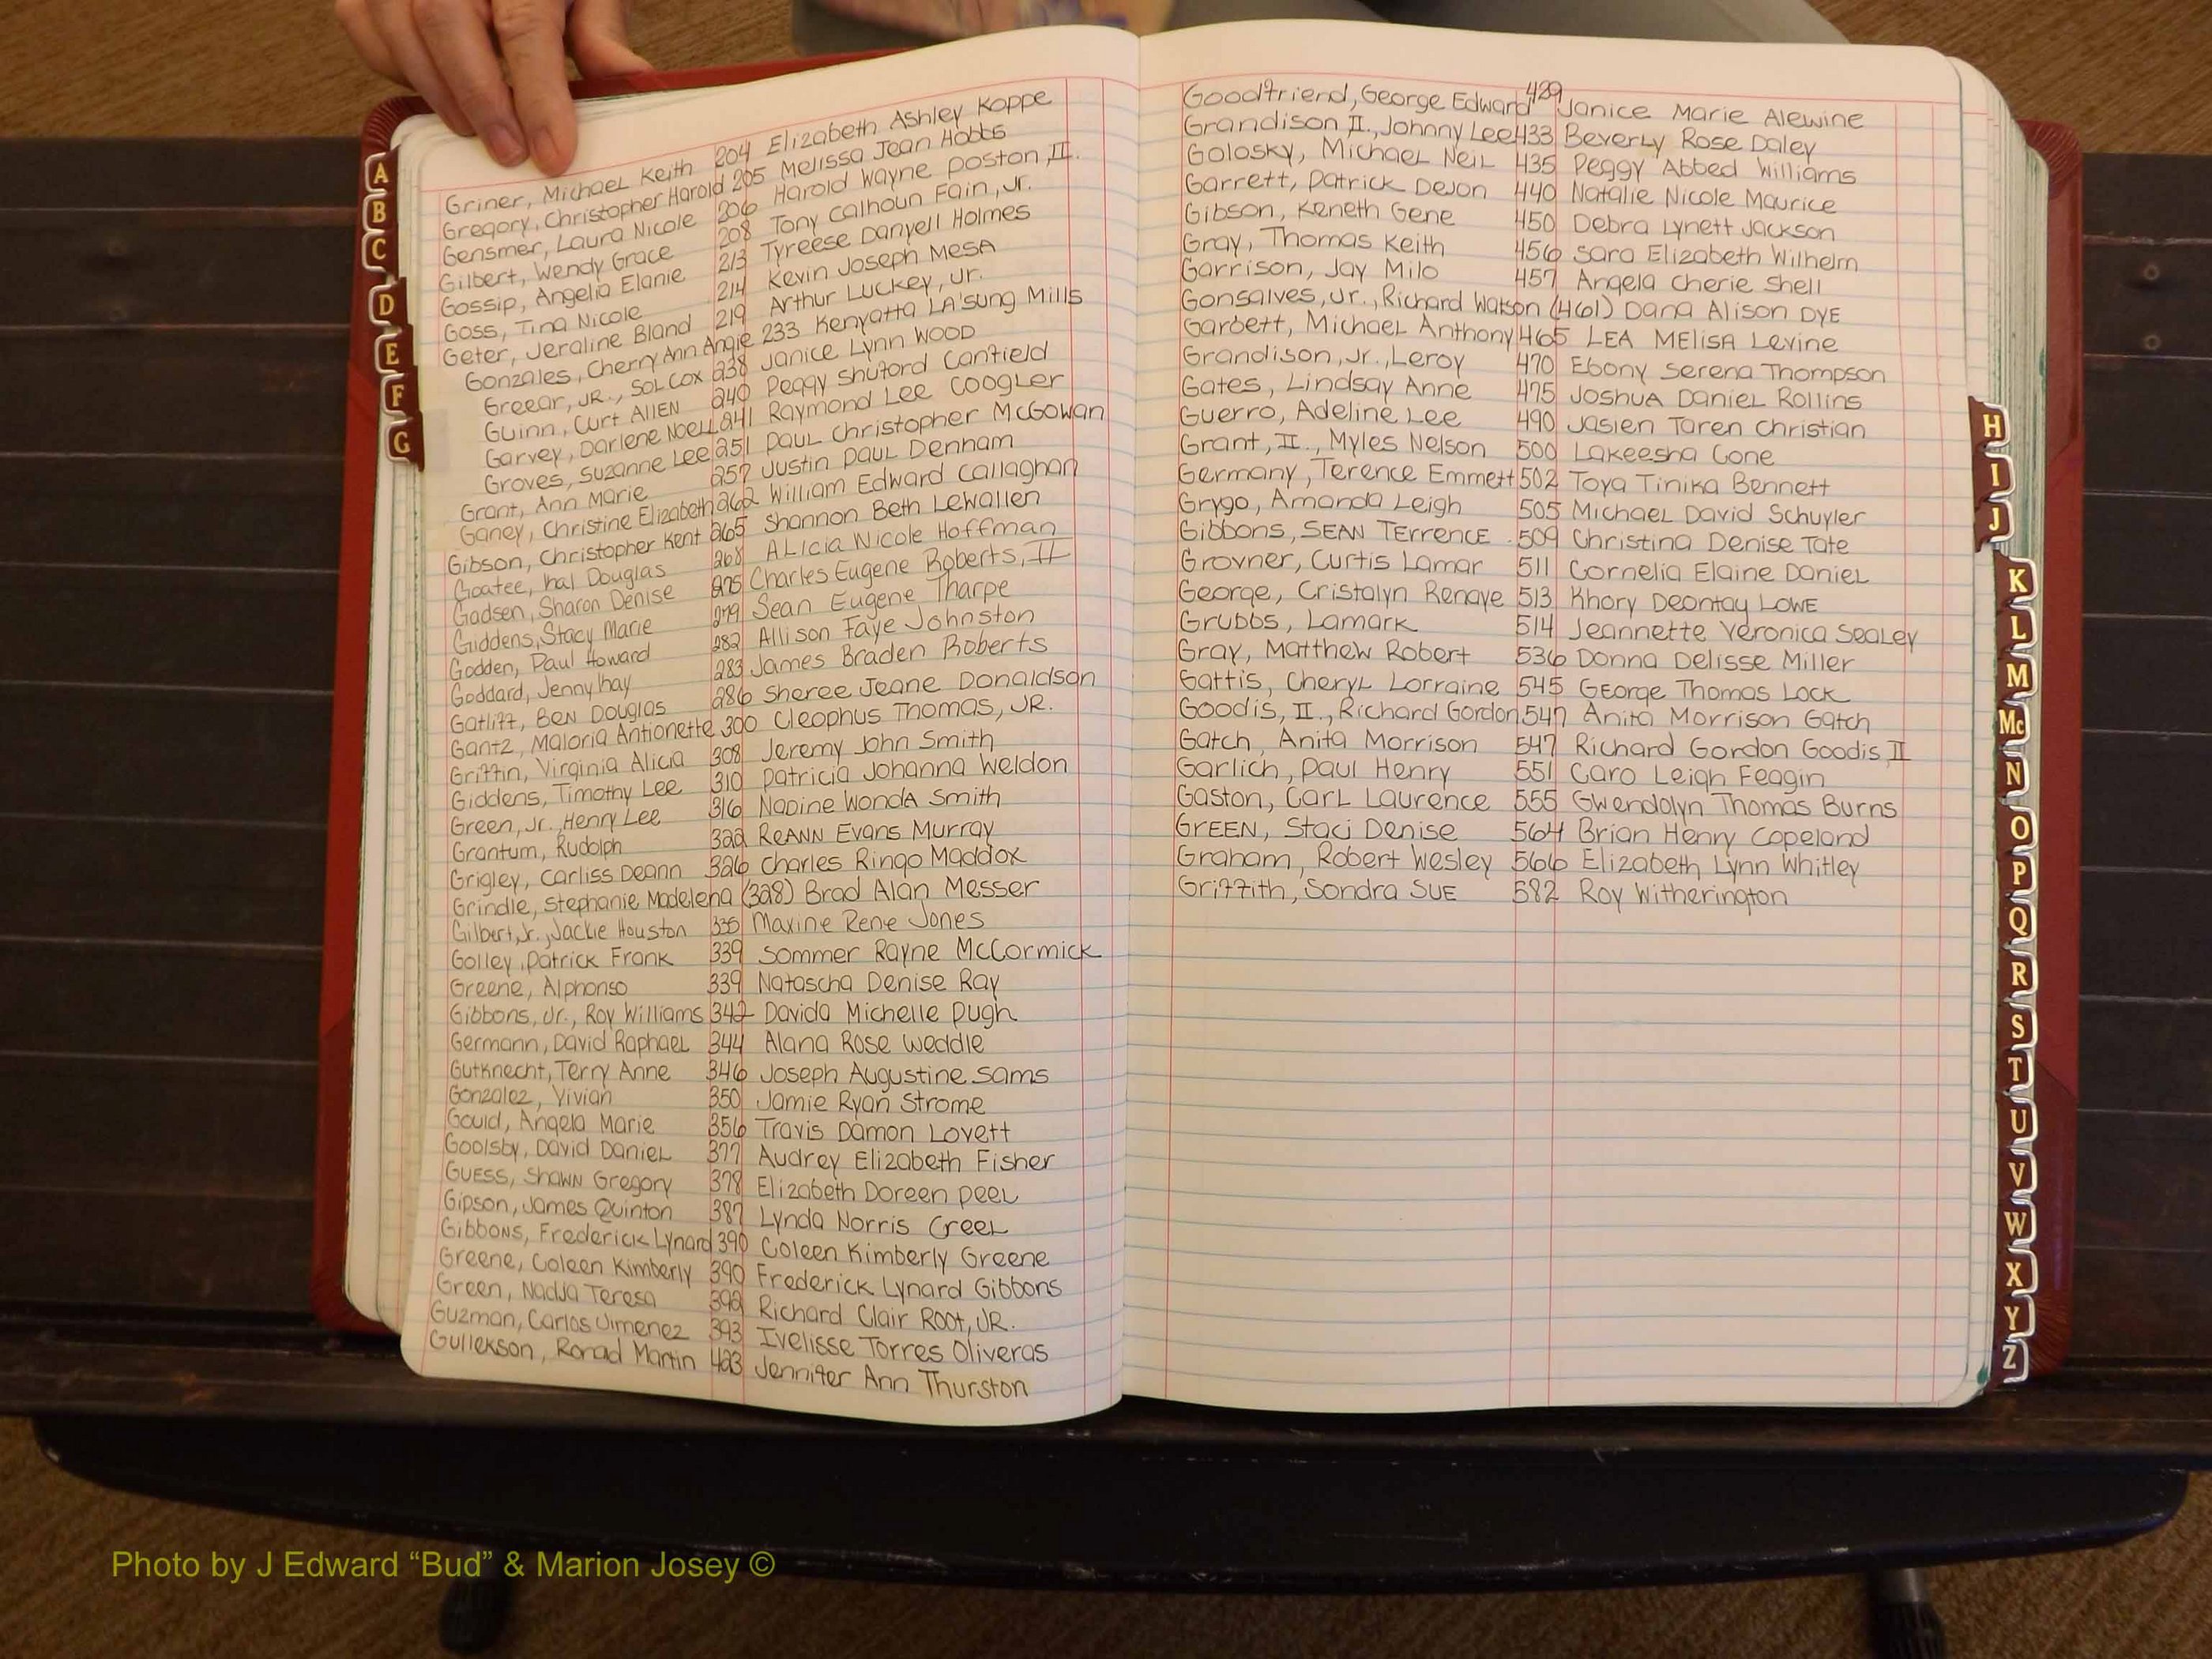 A
B
C
D
E
F
G
Griner, Michael Keith 204 Elizabeth Ashley Koppe
Gregory, Christopher Harold 205 Melissa Jean Hobbs
Gensmer, Laura Nicole 206 Harold Wayne Poston, II.
Gilbert, Wendy Grace 208 Tony Calhoun Fain, Jr.
Gossip, Angelia Elanie 213 Tyreese Danyell Holmes
Goss, Tina Nicole 214 Kevin Joseph Mesa
Geter, Jeraline Bland 219 Arthur Luckey, Jr.
Gonzales, Cherry Ann Angie 233 Kenyatta LA'Sung Mills
Greear, JR., Sol Cox 238 Janice Lynn Wood
Guinn, Curt Allen 240 Peggy Shuford Canfield
Garvey, Darlene Noell 241 Raymond Lee Coogler
Groves, Suzanne Lee 251 Paul Christopher McGowan
Grant, Ann Marie 257 Justin Paul Denham
Ganey, Christine Elizabeth 262 William Edward Callaghan
Gibson, Christopher Kent 265 Shannon Beth Lewallen
Goatee, Hal Douglas 268 Alicia Nicole Hoffman
Gadsen, Sharon Denise 275 Charles Eugene Roberts, II
Giddens, Stacy Marie 279 Sean Eugene Tharpe
Godden, Paul Howard 282 Allison Faye Johnston
Goddard, Jenny Kay 283 James Braden Roberts
Gatliff, Ben Douglas 286 Sheree Jeane Donaldson
Gantz, Maloria Antionette 300 Cleophus Thomas, JR.
Griffin, Virginia Alicia 308 Jeremy John Smith
Giddens, Timothy Lee 310 Patricia Johanna Weldon
Green, Jr., Henry Lee 316 Nadine Wonda Smith
Grantum, Rudolph 322 ReAnn Evans Murray
Grigley, Carliss Deann 326 Charles Ringo Maddox
Grindle, Stephanie Madelena (328) Brad Alan Messer
Gilbert, Jr., Jackie Houston 335 Maxine Rene Jones
Golley, Patrick Frank 339 Sommer Rayne McCormick
Greene, Alphonso 339 Natascha Denise Ray
Gibbons, Jr., Roy Williams 342 Davida Michelle Pugh
Germann, David Raphael 344 Alana Rose Weddle
Gutknecht, Terry Anne 346 Joseph Augustine Sams
Gonzalez, Vivian 350 Jamie Ryan Strome
Gould, Angela Marie 356 Travis Damon Lovett
Goolsby, David Daniel 377 Audrey Elizabeth Fisher
Guess, Shawn Gregory 378 Elizabeth Doreen Peel
Gipson, James Quinton 387 Lynda Norris Creel
Gibbons, Frederick Lynard 390 Coleen Kimberly Greene
Greene, Coleen Kimberly 390 Frederick Lynard Gibbons
Green, Nadja Teresa 392 Richard Clair Root, JR.
Guzman, Carlos Jimenez 393 Ivelisse Torres Oliveras
Gullekson, Ronad Martin 423 Jennifer Ann Thurston
Goodfriend, George Edward 429 Janice Marie Alewine
Grandison II., Johnny Lee 433 Beverly Rose Daley
Golosky, Michael Neil 435 Peggy Abbed Williams
Garrett, Patrick Devon 440 Natalie Nicole Maurice
Gibson, Keneth Gene 450 Debra Lynett Jackson
Gray, Thomas Keith 456 Sara Elizabeth Wilhelm
Garrison, Jay Milo 457 Angela Cherie Shell
Gonsalves, Jr., Richard Watson (461) Dana Alison Dye
Garbett, Michael Anthony 465 Lea Melisa Levine
Grandison, Jr., Leroy 470 Ebony Serena Thompson
Gates, Lindsay Anne 475 Joshua Daniel Rollins
Guerro, Adeline Lee 490 Jasien Taren Christian
Grant, II., Myles Nelson 500 Lakeesha Cone
Germany, Terence Emmett 502 Toya Tinika Bennett
Grygo, Amanda Leigh 505 Michael David Schuyler
Gibbons, Sean Terrence 509 Christina Denise Tate
Grovner, Curtis Lamar 511 Cornelia Elaine Daniel
George, Cristalyn Renaye 513 Khory Deontay Lowe
Grubbs, Lamark 514 Jeannette Veronica Sealey
Gray, Matthew Robert 536 Donna Delisse Miller
Gattis, Cheryl Lorraine 545 George Thomas Lock
Goodis, II., Richard Gordon 547 Anita Morrison Gatch
Gatch, Anita Morrison 547 Richard Gordon Goodis, II
Garlich, Paul Henry 551 Caro Leigh Feagin
Gaston, Carl Laurence 555 Gwendolyn Thomas Burns
Green, Staci Denise 564 Brian Henry Copeland
Graham, Robert Wesley 566 Elizabeth Lynn Whitley
Griffith, Sondra Sue 582 Roy Witherington
H
I
J
K
L
M
Mc
N
O
P
Q
R
S
T
U
V
W
X
Y
Z
Photo by J Edward “Bud” & Marion Josey ©